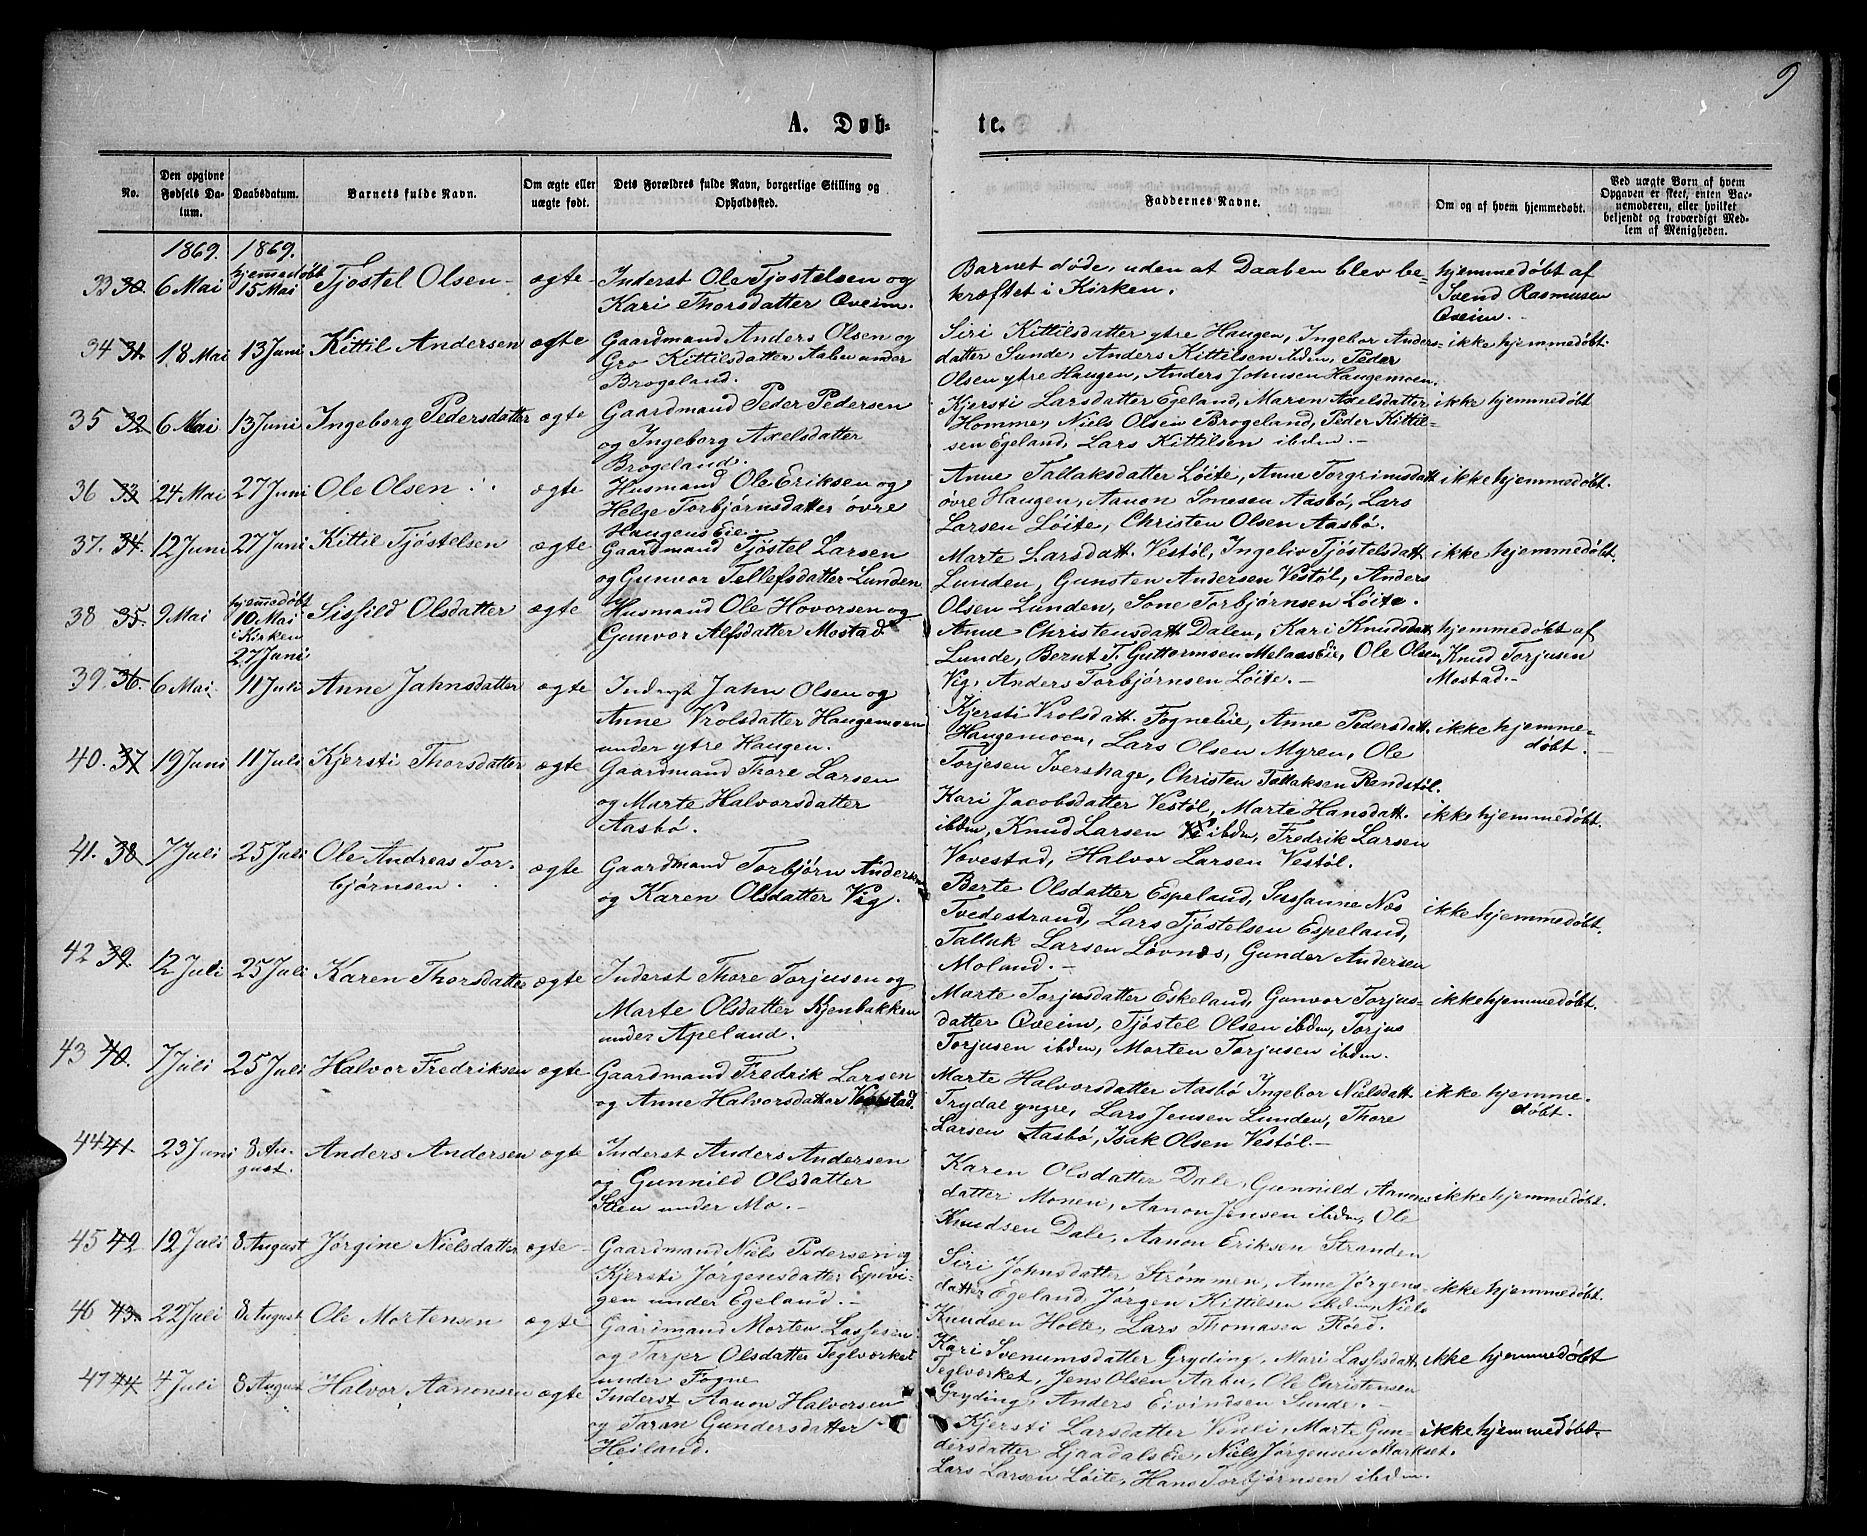 9
A. Døbte.
No.
Den opgivne Fødsels Datum.
Daabsdatum.
Barnets fulde Navn.
Om ægte eller uægte født.
Dets Forældres fulde Navn, borgerlige Stilling og Opholdsted.
Faddernes Navne.
Om og af hvem hjemmedøbt.
Ved uægte Børn af hvem Opgaven er skeet, enten Barnemoderen, eller hvilket bekjendt og troværdigt Medlem af Menigheden.
1869. 1869.
33 30. 6 Mai hjemmedøbt 15 Mai Tjøstel Olsen ægte
Inderst Ole Tjøstelsen og
Kari Thorsdatter Qveim.
Barnet døde, uden at Daaben blev be-
kræftet i Kirken.
hjemmedøbt af
Svend Rasmusen
Qveim.
34 31. 18 Mai 13 Juni Kittil Andersen ægte
Gaardmand Anders Olsen og
Gro Kittilsdatter Aabu under
Brogeland.
Siri Kittilsdatter ytre Haugen, Ingebor Anders-
datter Sunde, Anders Kittilsen ibdm, Peder
Olsen ytre Haugen, Anders Johnsen Haugemoen.
ikke hjemmedøbt.
35 32 6 Mai 13 Juni Ingeborg Pedersdatter ægte
Gaardmand Peder Pedersen
og Ingeborg Axelsdatter
Brogeland.
Kjersti Larsdatter Egeland, Maren Axelsdatter
Homme, Niels Olsen Brogeland, Peder Kittil-
sen Egeland, Lars Kittilsen ibdm.
ikke hjemmedøbt
36 33 24 Mai 27 Juni Ole Olsen ægte
Husmand Ole Eriksen og
Helge Torbjørnsdatter øvre
Haugens Eie
Anne Tallaksdatter Løite, Anne Torgrimsdatt
øvre Haugen, Aanon Sonesen Aasbø, Lars
Larsen Løite, Christen Olsen Aasbø.
ikke hjemmedøbt.
37. 34. 12 Juni 27 Juni Kittil Tjøstelsen ægte
Gaardmand Tjøstel Larsen
og Gunvor Tellefsdatter Lunden
Marte Larsdatt. Vestøl, Ingeliv Tjøstelsdatt
Lunden, Gunsten Andersen Vestøl, Anders
Olsen Lunden, Sone Torbjørnsen Løite.
ikke hjemmedøbt.
38 35. 9 Mai hjemmedøbt 10 Mai i Kirken 27 Juni Sissild Olsdatter ægte
Husmand Ole Hovorsen og
Gunvor Alfsdatter Mostad
Anne Christensdatt Dalen, Kari Knudsdatt
Lunde, Bernt T. Guttormsen Melaaseie, Ole Olsen
Vig, Anders Torbjørnsen Løite.
hjemmedøbt af
Knud Torjusen
Mostad.
39. 36. 6 Mai. 11 Juli Anne Jahnsdatter ægte
Inderst Jahn Olsen og
Anne Vrolsdatter Haugemoen
under ytre Haugen.
Kjersti Vrolsdatt. Fogne Eie, Anne Pedersdatt
Haugemoen, Lars Olsen Myren, Ole
Torjesen Ivershage, Christen Tallaksen Randstøl.
ikke hjemme-
døbt.
40. 37 19 Juni 11 Juli Kjersti Thorsdatter ægte
Gaardmand Thore Larsen
og Marte Halvorsdatter
Aasbø.
Kari Jacobsdatter Vestøl, Marte Hansdatt.
ibdm, Knud Larsen ibdm, Fredrik Larsen
Vovestad, Halvor Larsen Vestøl.
ikke hjemmedøbt.
41. 38 7 Juli 25 Juli Ole Andreas Tor-
bjørnsen. ægte
Gaardmand Torbjørn Andersen
og Karen Olsdatter Vig.
Berte Olsdatter Espeland, Sussanne Næs
Tvedestrand, Lars Tjøstelsen Espeland,
Tallak Larsen Løvnes, Gunder Andersen
Moland.
ikke hjemmedøbt.
42 39. 12 Juli 25 Juli Karen Thorsdatter ægte
Inderst Thore Torjusen og
Marte Olsdatter Kjenbakken
under Apeland.
Marte Torjusdatter Eskeland, Gunvor Torjus-
datter Qveim, Tjøstel Olsen ibdm, Torjus
Torjusen ibdm, Morten Torjusen ibdm.
ikke hjemmedøbt.
43 40. 7 Juli 25 Juli Halvor Fredriksen ægte
Gaardmand Fredrik Larsen
og Anne Halvorsdatter Vovestad.
Marte Halvorsdatter Aasbø Ingebor Nielsdatt
Trydal yngre, Lars Jensen Lunden, Thore
Larsen Aasbø, Isak Olsen Vestøl.
ikke hjemme-
døbt.
44 41. 23 Juni 8 Au-
gust. Anders Andersen ægte
Inderst Anders Andersen
og Gunnild Olsdatter
Steen under Mo.
Karen Olsdatter Dale, Gunnild Aanons
datter Monen, Aanon Jensen ibdm, Ole
Knudsen Dale, Aanon Eriksen Stranden
ikke hjemmedøbt.
45 42 12 Juli 8 August Jørgine Nielsdatter ægte
Gaardmand Niels Pedersen og
Kjersti Jørgensdatter Espevi-
gen under Egeland.
Siri Johnsdatter Strømmen, Anne Jørgens-
datter Egeland, Jørgen Kittilsen ibdm, Niels
Knudsen Holte, Lars Thomasen Røed.
ikke hjemmedøbt.
46 43. 22 Juli 8 August Ole Mortensen ægte
Gaardmand Morten Lassesen
og Tarjer Olsdatter Teglverket
under Fogne
Kari Svenumsdatter Gryding, Mari Lassesdatt
Teglverket, Jens Olsen Aabu, Ole Christensen
Gryding, Anders Eivindsen Sunde.
ikke hjemmedøbt
47 44 4 Juli 8 August Halvor Aanonsen ægte
Inderst Aanon Halvorsen
og Taran Gundersdatter
Heiland.
Kjersti Larsdatter Venli, Marte Gun-
dersdatter Ljaadalseie, Niels Jørgensen Markset.
Lars Larsen Løite, Hans Torbjørnsen ibdm.
ikke hjemmedøbt.